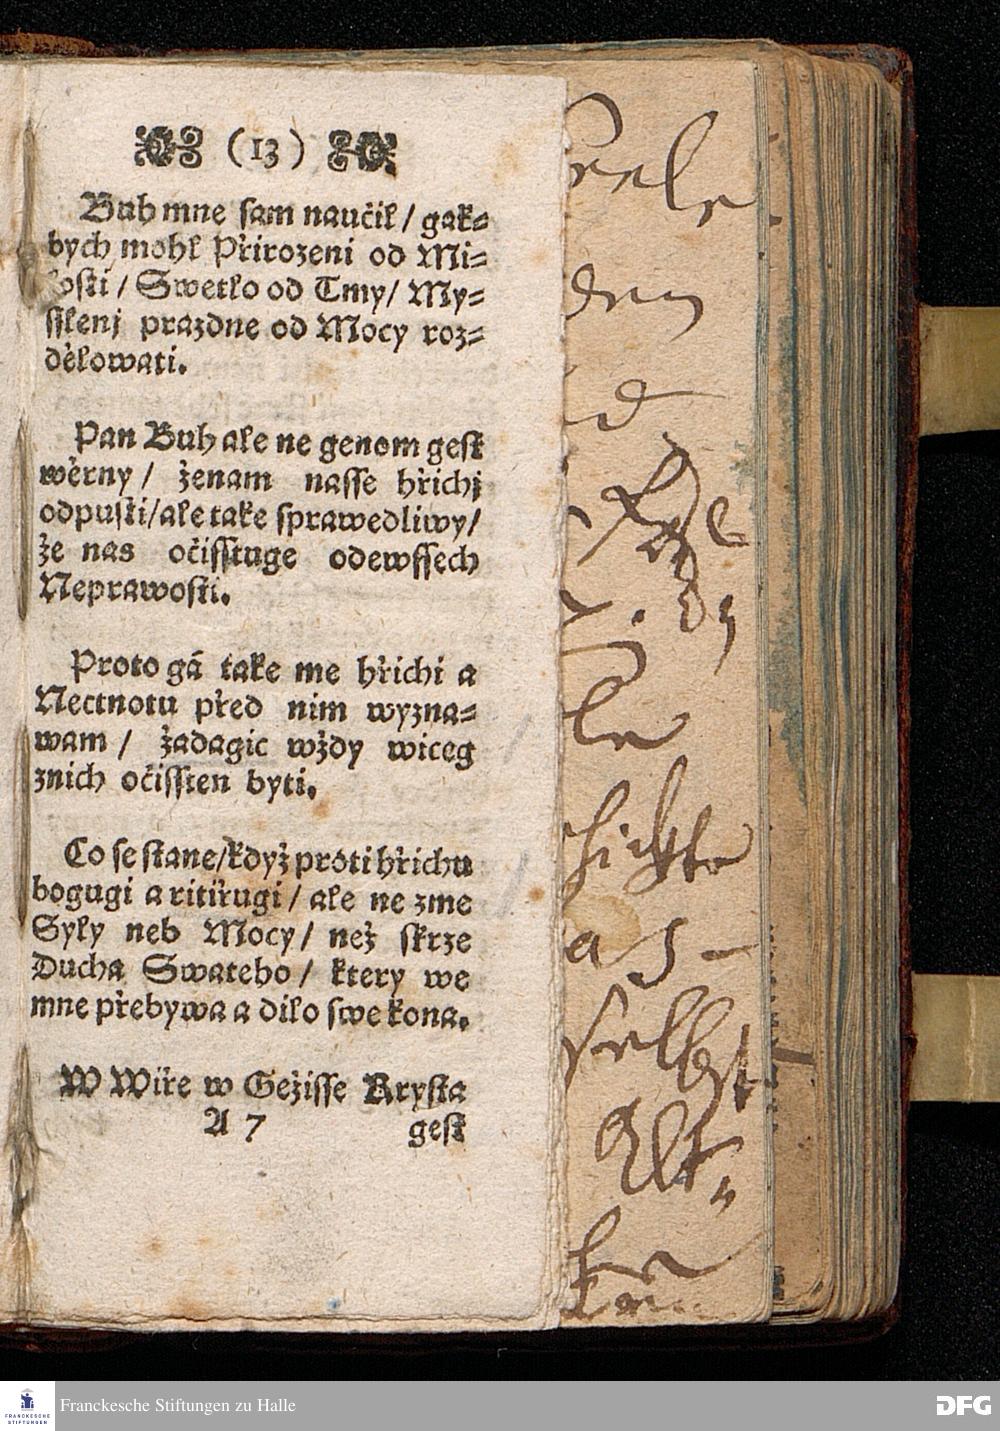 (13)
Buh mne sam naučil / gak⸗
bych mohl Přirozeni od Mi⸗
losti / Swetlo od Tmy / My⸗
sslenj prazdne od Mocy roz⸗
dělowati.
Pan Buh ale ne genom gest
wěrny / ženam nasse hřichj
odpusti / ale take sprawedliwy /
že nas očisstuge odewssech
Neprawosti.
Proto gá take me hřichi a
Nectnotu před nim wyzna⸗
wam / žadagic wždy wiceg
znich očissten byti.
Co se stane / když proti hřichu
bogugi a ritiřugi / ale ne zme
Syly neb Mocy / než skrze
Ducha Swateho / ktery we
mne přebywa a dilo swe kona.
W Wiře w Gežisse Krysta
A 7 gest
den
selbst
Franckesche Stiftungen zu Halle
FRANCKESCHE
STIFTUNGEN
DFG